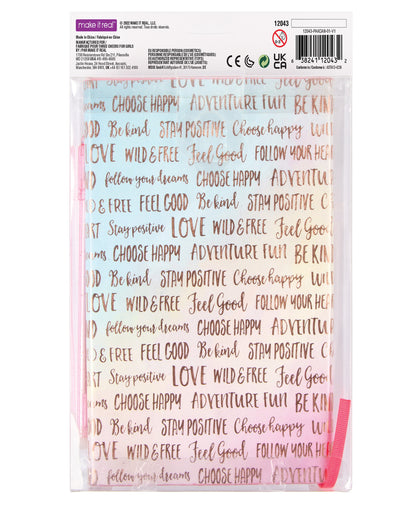 make it real
© 2022 MAKE IT REAL, LLC.
12043
12043-PACKAB-01-V1
Made in China / Fabriqué en Chine
MANUFACTURED FOR /
UK CA
6 38241 12043 2
CHOOSE HAPPY ADVENTURE FUN BE KIND
OD Be kind STAY POSITIVE Choose happy W
LOVE WILD & FREE Feel Good FOLLOW YOUR HEA
D follow your dreams CHOOSE HAPPY ADVENTUR
D & FREE FEEL GOOD Be kind STAY POSITIVE C
RT Stay positive LOVE WILD & FREE Feel Good
ams CHOOSE HAPPY ADVENTURE FUN BE KIND
OD Be kind STAY POSITIVE Choose happy W
LOVE WILD & FREE Feel Good FOLLOW YOUR HEA
D follow your dreams CHOOSE HAPPY ADVENTUR
D & FREE FEEL GOOD Be kind STAY POSITIVE C
RT Stay positive LOVE WILD & FREE Feel Good
ams CHOOSE HAPPY ADVENTURE FUN BE KIND
OD Be kind STAY POSITIVE Choose happy
LOVE WILD & FREE Feel Good FOLLOW YOUR
D follow your dreams CHOOSE HAPPY ADVEN